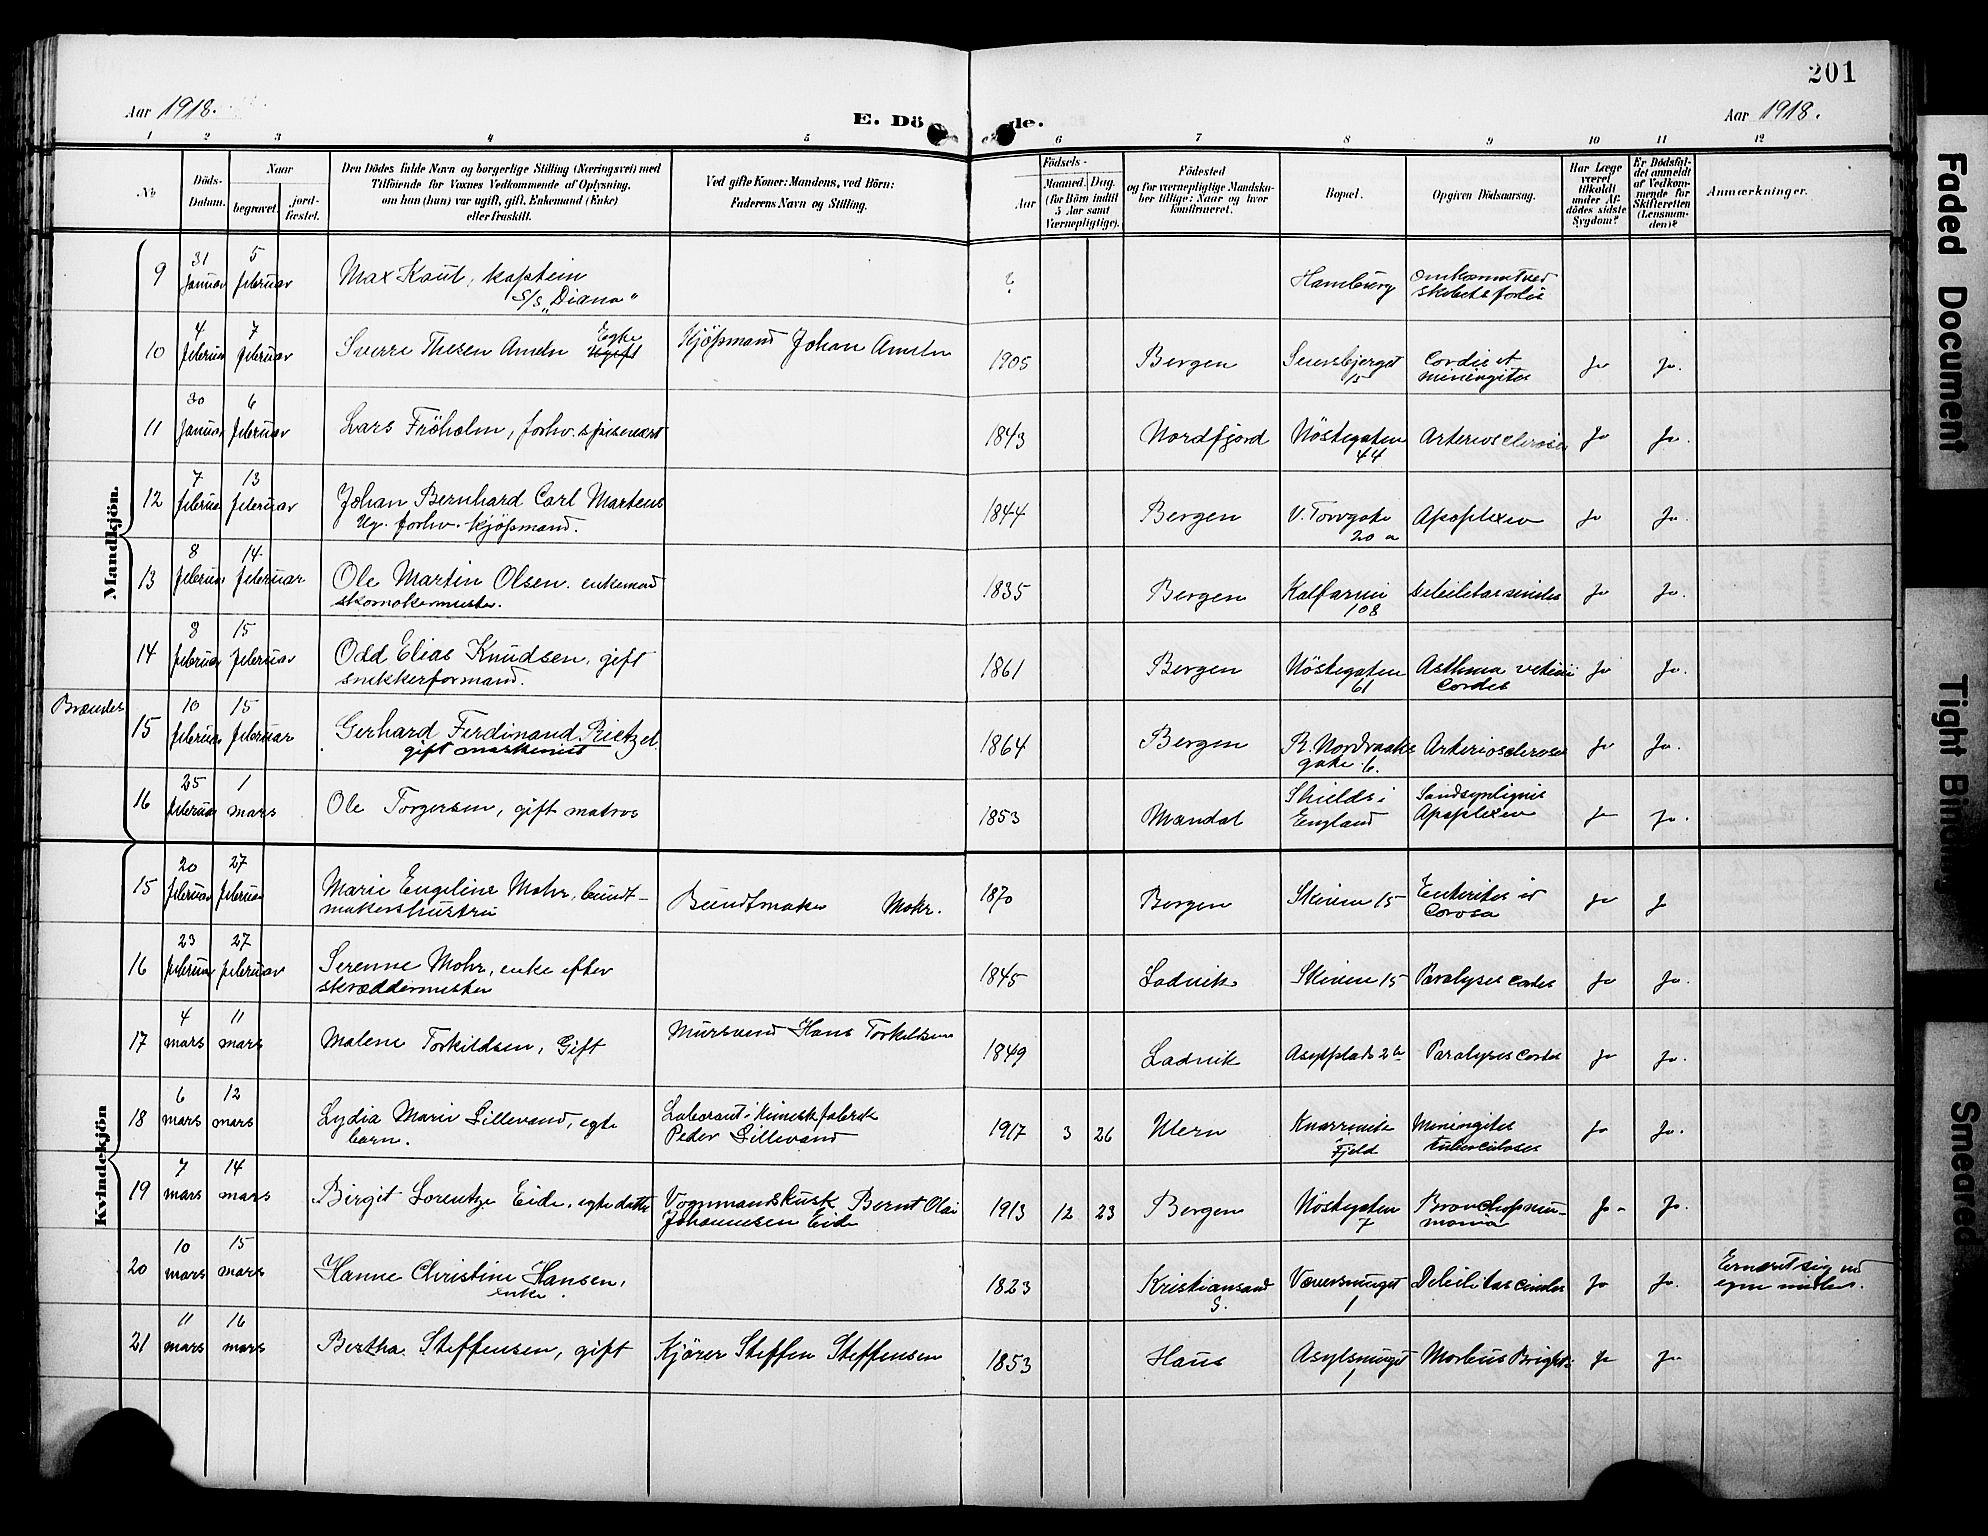 201
Aar 1918.
E. Dö de.
Aar 1918.
1 2 3 4 5 6 7 8 9 10 11 12
No
Döds-
Datum.
Naar
begravet.
jord-
fæstet.
Den Dödes fulde Navn og borgerlige Stilling (Næringsvei) med
Tilföiende for Voxnes Vedkommende af Oplysning,
om han (hun) var ugift, gift, Enkemand (Enke)
eller fraskilt.
Ved gifte Koner: Mandens, ved Börn:
Faderens Navn og Stilling.
Födsels-
Aar
Maaned. Dag.
(for Börn indtil
5 Aar samt
Værnepligtige).
Födested
og for værnepligtige Mandska-
ber tillige: Naar og hvor
konfirmeret.
Bopæl.
Opgiven Dödsaarsag.
Har Læge
været
tilkaldt
under Af-
dödes sidste
Sygdom?
Er Dödsfal-
det anmeldt
af Vedkom-
mende for
Skifteretten
(Lensman-
den)?
Anmærkninger.
Mandkjön.
9 31 Januar 5 februar Max Kaul, kaptein
S/S "Diana" ? Hamburg omkommet ved
skibets forlis
10 4 februar 7 februar Sverre Thesen Ameln Egte
Ugift Kjöpmand Johan Ameln 1905 Bergen 15 Cordis et
meningites Ja Ja.
11 30 Januar 6 februar Lars Fröholm, forhv. spisevært 1843 Nordfjord Nöstegaten
44 Arteriosclerose Ja Ja.
12 7 februar 13 februar Johan Bernhard Carl Martens
Ug. forhv. kjöpmand. 1844 Bergen V. Torvgate
20 a Apoplexia Ja Ja.
13 8 februar 14 februar Ole Martin Olsen. enkemand
skomakermester. 1835 Bergen Kalfarvei
108 Debilitas seniles Ja Ja.
14 8 februar 15 februar Odd Elias Knudsen, gift
snekkerformand. 1861 Bergen Nöstegaten
61 Asthma
Cordis Ja Ja.
Brændes
15 10 februar 15 februar Gerhard Ferdinand Rietzel
gift maskinist 1864 Bergen R. Nordraaks
gate 6. Arteriosclerose Ja Ja.
16 25 februar 1 mars Ole Torgersen, gift matros 1853 Mandal Shields i
England Sandsynligvis
Apoplexia Ja Ja.
Kvindekjön
15 20 februar 27 februar Marie Engeline Mohr, bundt-
makershustru Bundtmaker Mohr. 1870 Bergen Skiven 15 Ja J
16 23 februar 27 februar Serenne Mohr, enke efter
skræddermester 1845 Ladvik Skiven 15 Paralyses cordis Ja Ja.
17 4 mars 11 mars Malene Torkildsen, Gift Mursvend Hans Torkildsen 1849 Ladvik Asylplads 2 b Paralyses cordis Ja Ja.
18 6 mars 12 mars Lydia Marie Lillevand, egte
barn. Laborant i Kemisk fabrik
Peder Lillevand 1917 3 26 Ulern
Fjeld Meningites
tuberculoses Ja Ja.
19 7 mars 14 mars Birgit Lorentze Eide, egte datter Vognmandskusk Bernt Olai
Johannesen Eide 1913 12 23 Bergen Nöstegaten
7 Bronchopneu-
monia Ja Ja.
20 10 mars 15 mars Hanne Christine Hansen,
enke. 1823 Kristiansand
S. Væversmuget
1 Debilitas seniles Ja Ja. Ernæret sig ved
egne midler.
21 11 mars 16 mars Bertha Steffensen, gift Kjörer Steffen Steffensen 1853 Haus Asylsmuget
1 Morbus Brightii Ja Ja
Faded Document
Tight Binding
Smeared